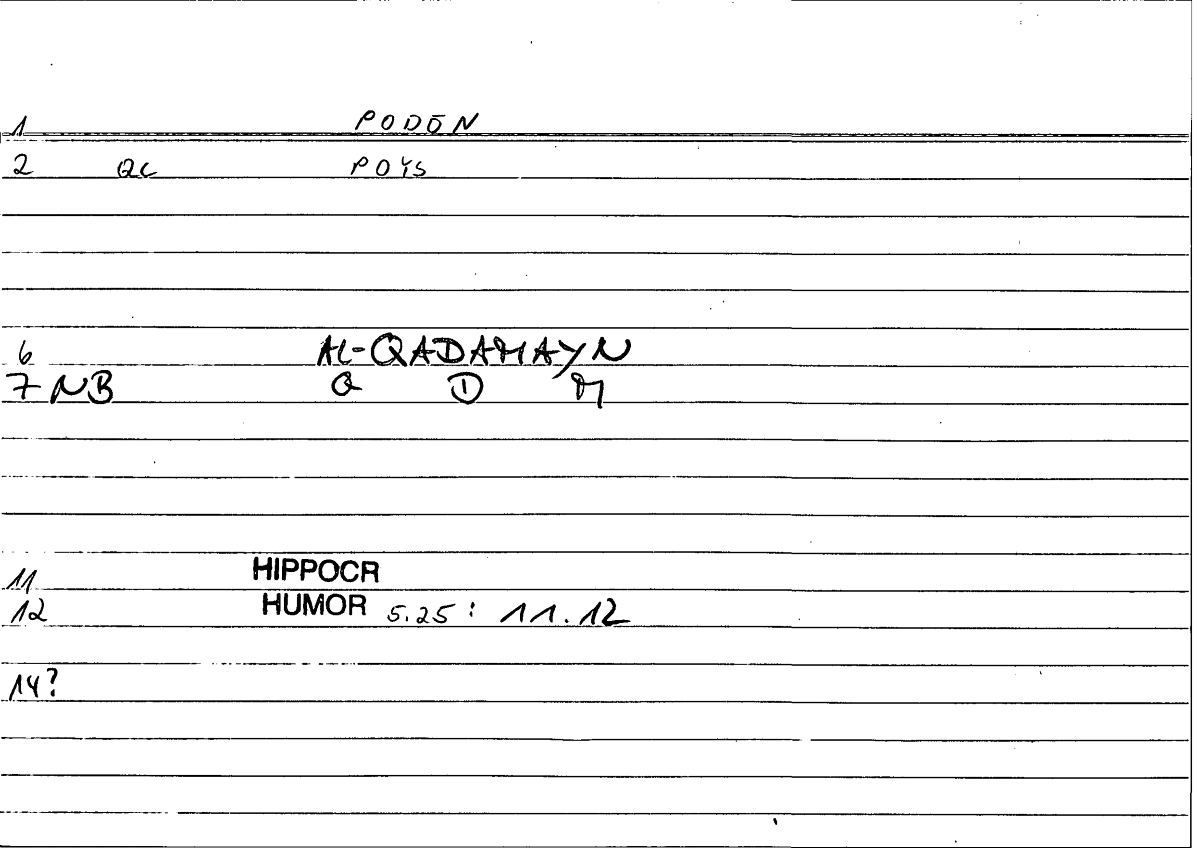 1 PODŌN
2 QC POYS
6 AL-QADAMAYN
7 NB Q D M
11 HIPPOCR
12 HUMOR 5.25 : 11.12
14?